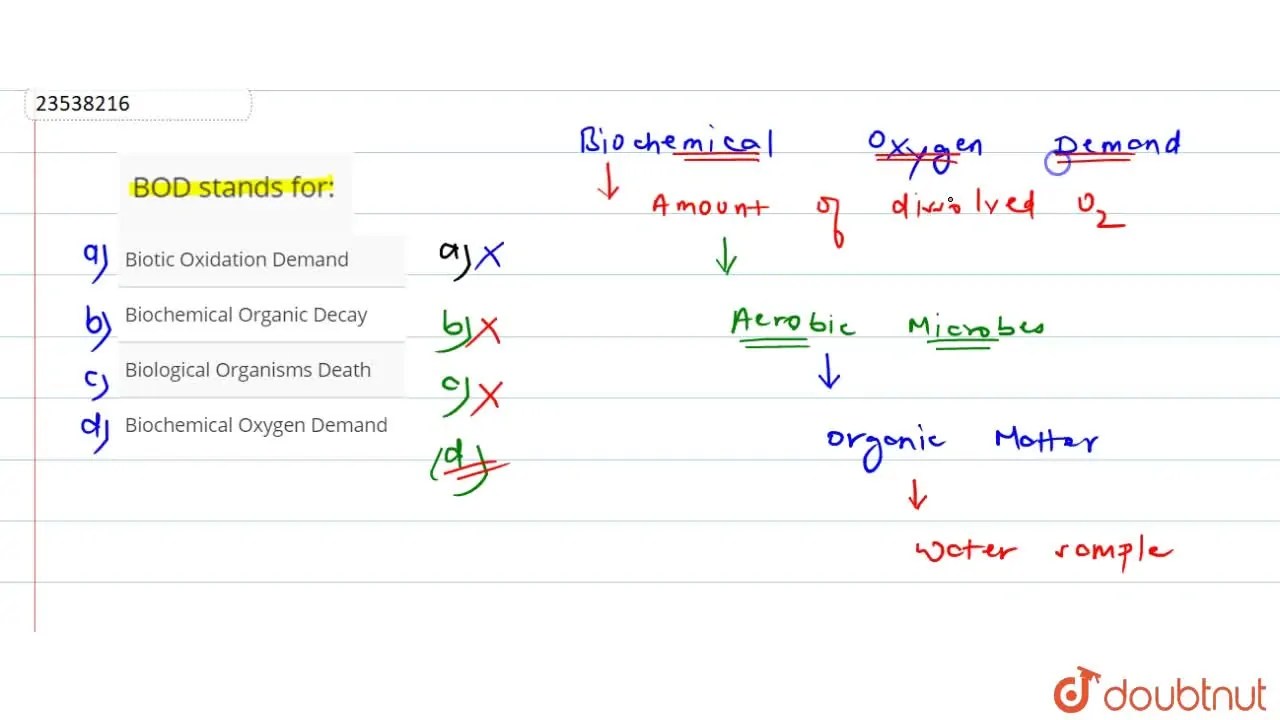 23538216
BOD stands for:
a) Biotic Oxidation Demand
b) Biochemical Organic Decay
c) Biological Organisms Death
d) Biochemical Oxygen Demand
a) X
b) X
c) X
(d)
Biochemical Oxygen Demand
↓ Amount of dissolved O2
↓
Aerobic Microbes
↓
Organic Matter
↓
Water sample
doubtnut